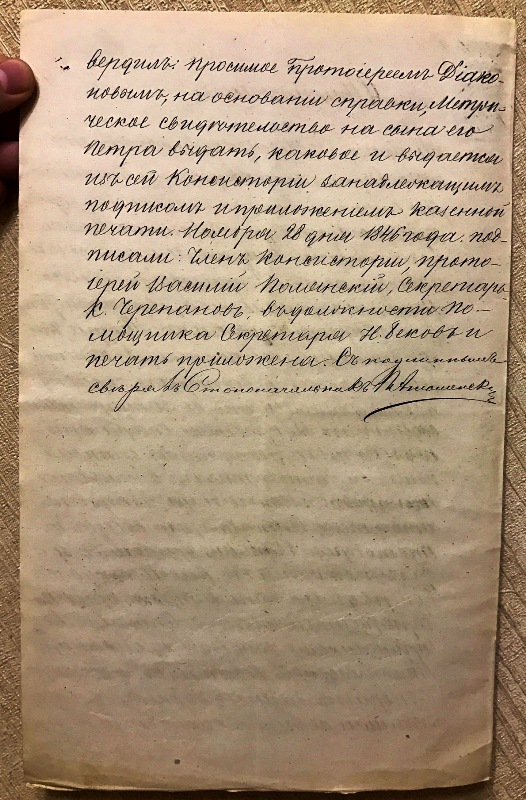 вердилъ: просимое Протоіереемъ Діако-
новымъ, на основаніи справки, Метри-
ческое свидѣтельство на сына его
Петра выдать, каковое и выдается
изъ сей Консисторіи занадлежащимъ
подписомъ и приложеніемъ казенной
печати. Ноября 28 дня 1846 года. под-
писали: Членъ Консисторіи, прото-
іерей Василій Поленскій, Секретарь
К. Черепановъ, въ должности По-
мощника Секретаря Н. Вековъ и
печать приложена. Съ подлиннымъ
свѣрялъ Столоначальникъ